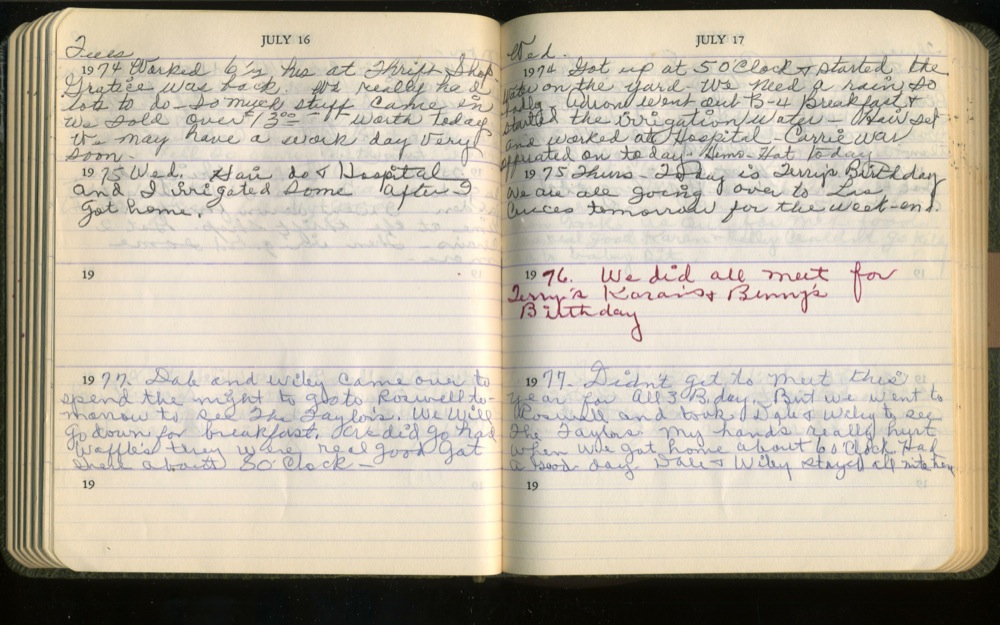 JULY 16
Tues
1974 Worked 6 1/2 hrs at Thrift Shop
was back. We really had
lots to do - So much stuff came in
We sold over $13.00 worth today
We may have a work day very
soon.
1975 Wed. Hair do & Hospital
and I irrigated some after I
got home.
19
1977. Dale and Wiley came over to
spend the night to go to Roswell to-
morrow to see The Taylors. We will
go down for breakfast. We did go had
waffles they were real good got
there about 8 O'Clock -
19
JULY 17
Wed.
1974 Got up at 5 O'Clock & started the
water on the yard. We need a rain so
badly. went out B-4 Breakfast &
started the irrigation water - Hair set
and worked at Hospital - Currie was
operated on to day - Hot today
1975 Thurs - Today is Terry's Birthday
we are all going over to Las
Cruces tomorrow for the week-end.
1976. We did all meet for
Terry's Karan's & Benny's
Birthday
1977. Didn't get to meet this
year for all 3 B.day. But we went to
Roswell and took Dale & Wiley to see
the Taylors. My hands really hurt
when we got home about 6 O'Clock. Had
a good day. Dale & Wiley stayed all nite
19